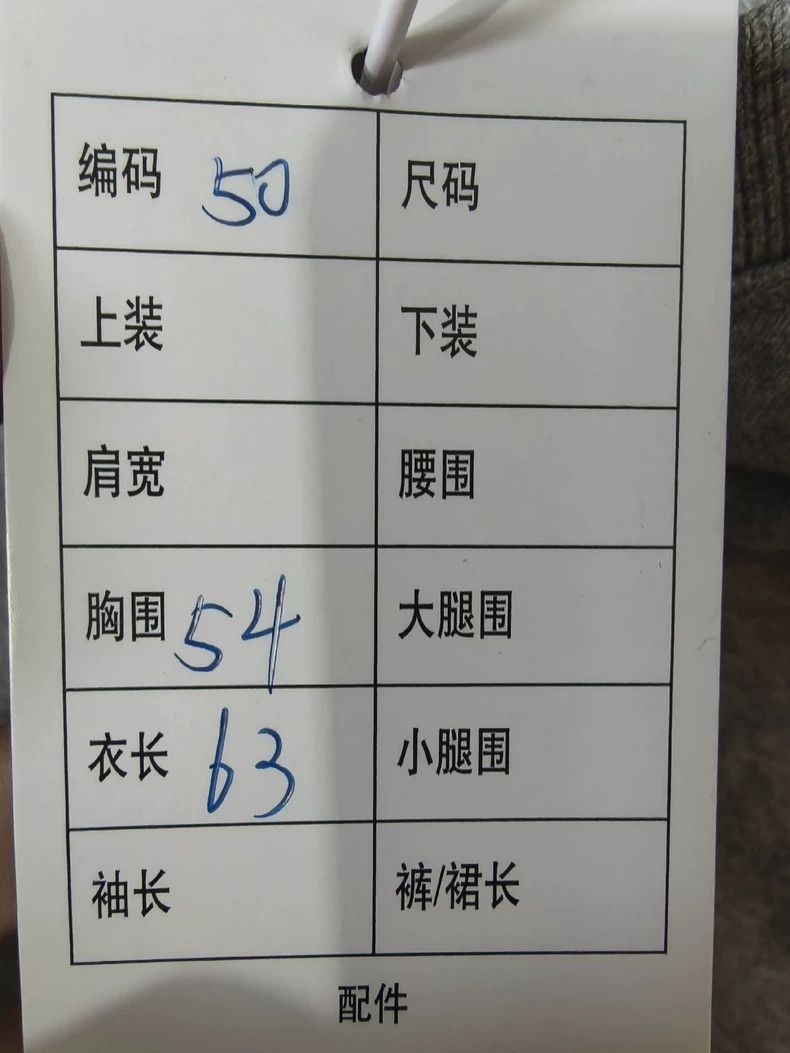 编码 50 尺码
上装 下装
肩宽 腰围
胸围 54 大腿围
衣长 63 小腿围
袖长 裤/裙长
配件